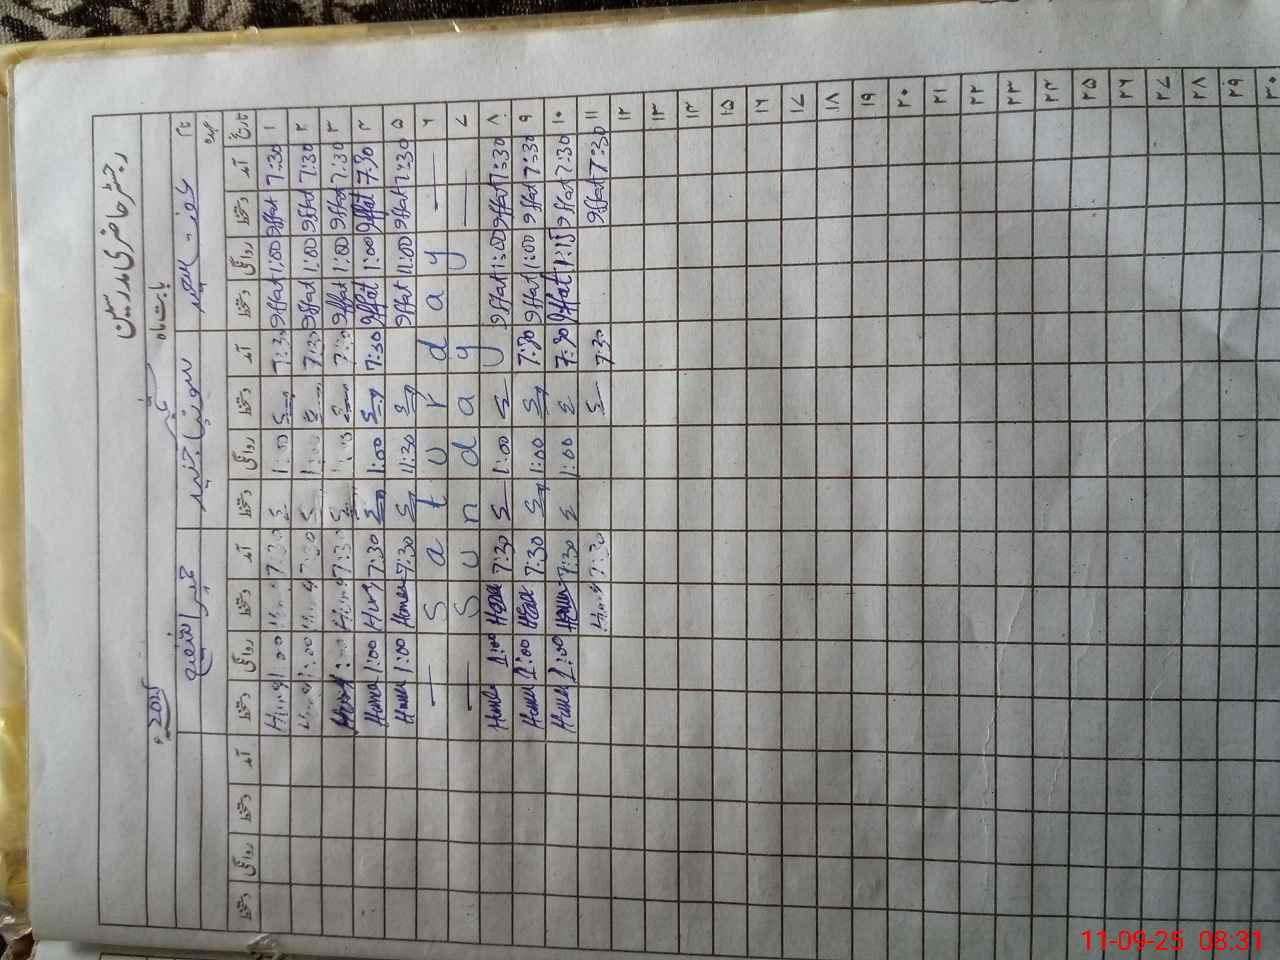 رجسٹر حاضری مدرسین
بابت ماہ ستمبر 2025ء
نام عفت سعید سونیا جنید حمیرا شفیع
عہدہ
تاریخ آمد دستخط روانگی دستخط آمد دستخط روانگی دستخط آمد دستخط روانگی دستخط آمد دستخط روانگی دستخط
۱ 7:30 Iffat 1:00 Iffat 7:30 1:00 7:30 1:00
۲ 7:30 Iffat 1:00 Iffat 7:30 1:00 7:30 1:00
۳ 7:30 Iffat 1:00 Iffat 7:30 1:00 7:30 1:00
۴ 7:30 Iffat 1:00 Iffat 7:30 1:00 7:30 Huma 1:00 Huma
۵ 7:30 Iffat 11:00 Iffat 11:30 7:30 Huma 1:00 Huma
۶ — Saturday —
۷ — Sunday —
۸ 7:30 Iffat 1:00 Iffat 1:00 7:30 Huma 1:00 Huma
۹ 7:30 Iffat 1:00 Iffat 7:30 1:00 7:30 Huma 1:00 Huma
۱۰ 7:30 Iffat 1:15 Iffat 7:30 1:00 7:30 Huma 1:00 Huma
۱۱ 7:30 Iffat 7:30 7:30
۱۲
۱۳
۱۴
۱۵
۱۶
۱۷
۱۸
۱۹
۲۰
۲۱
۲۲
۲۳
۲۴
۲۵
۲۶
۲۷
۲۸
۲۹
۳۰
11-09-25 08:31